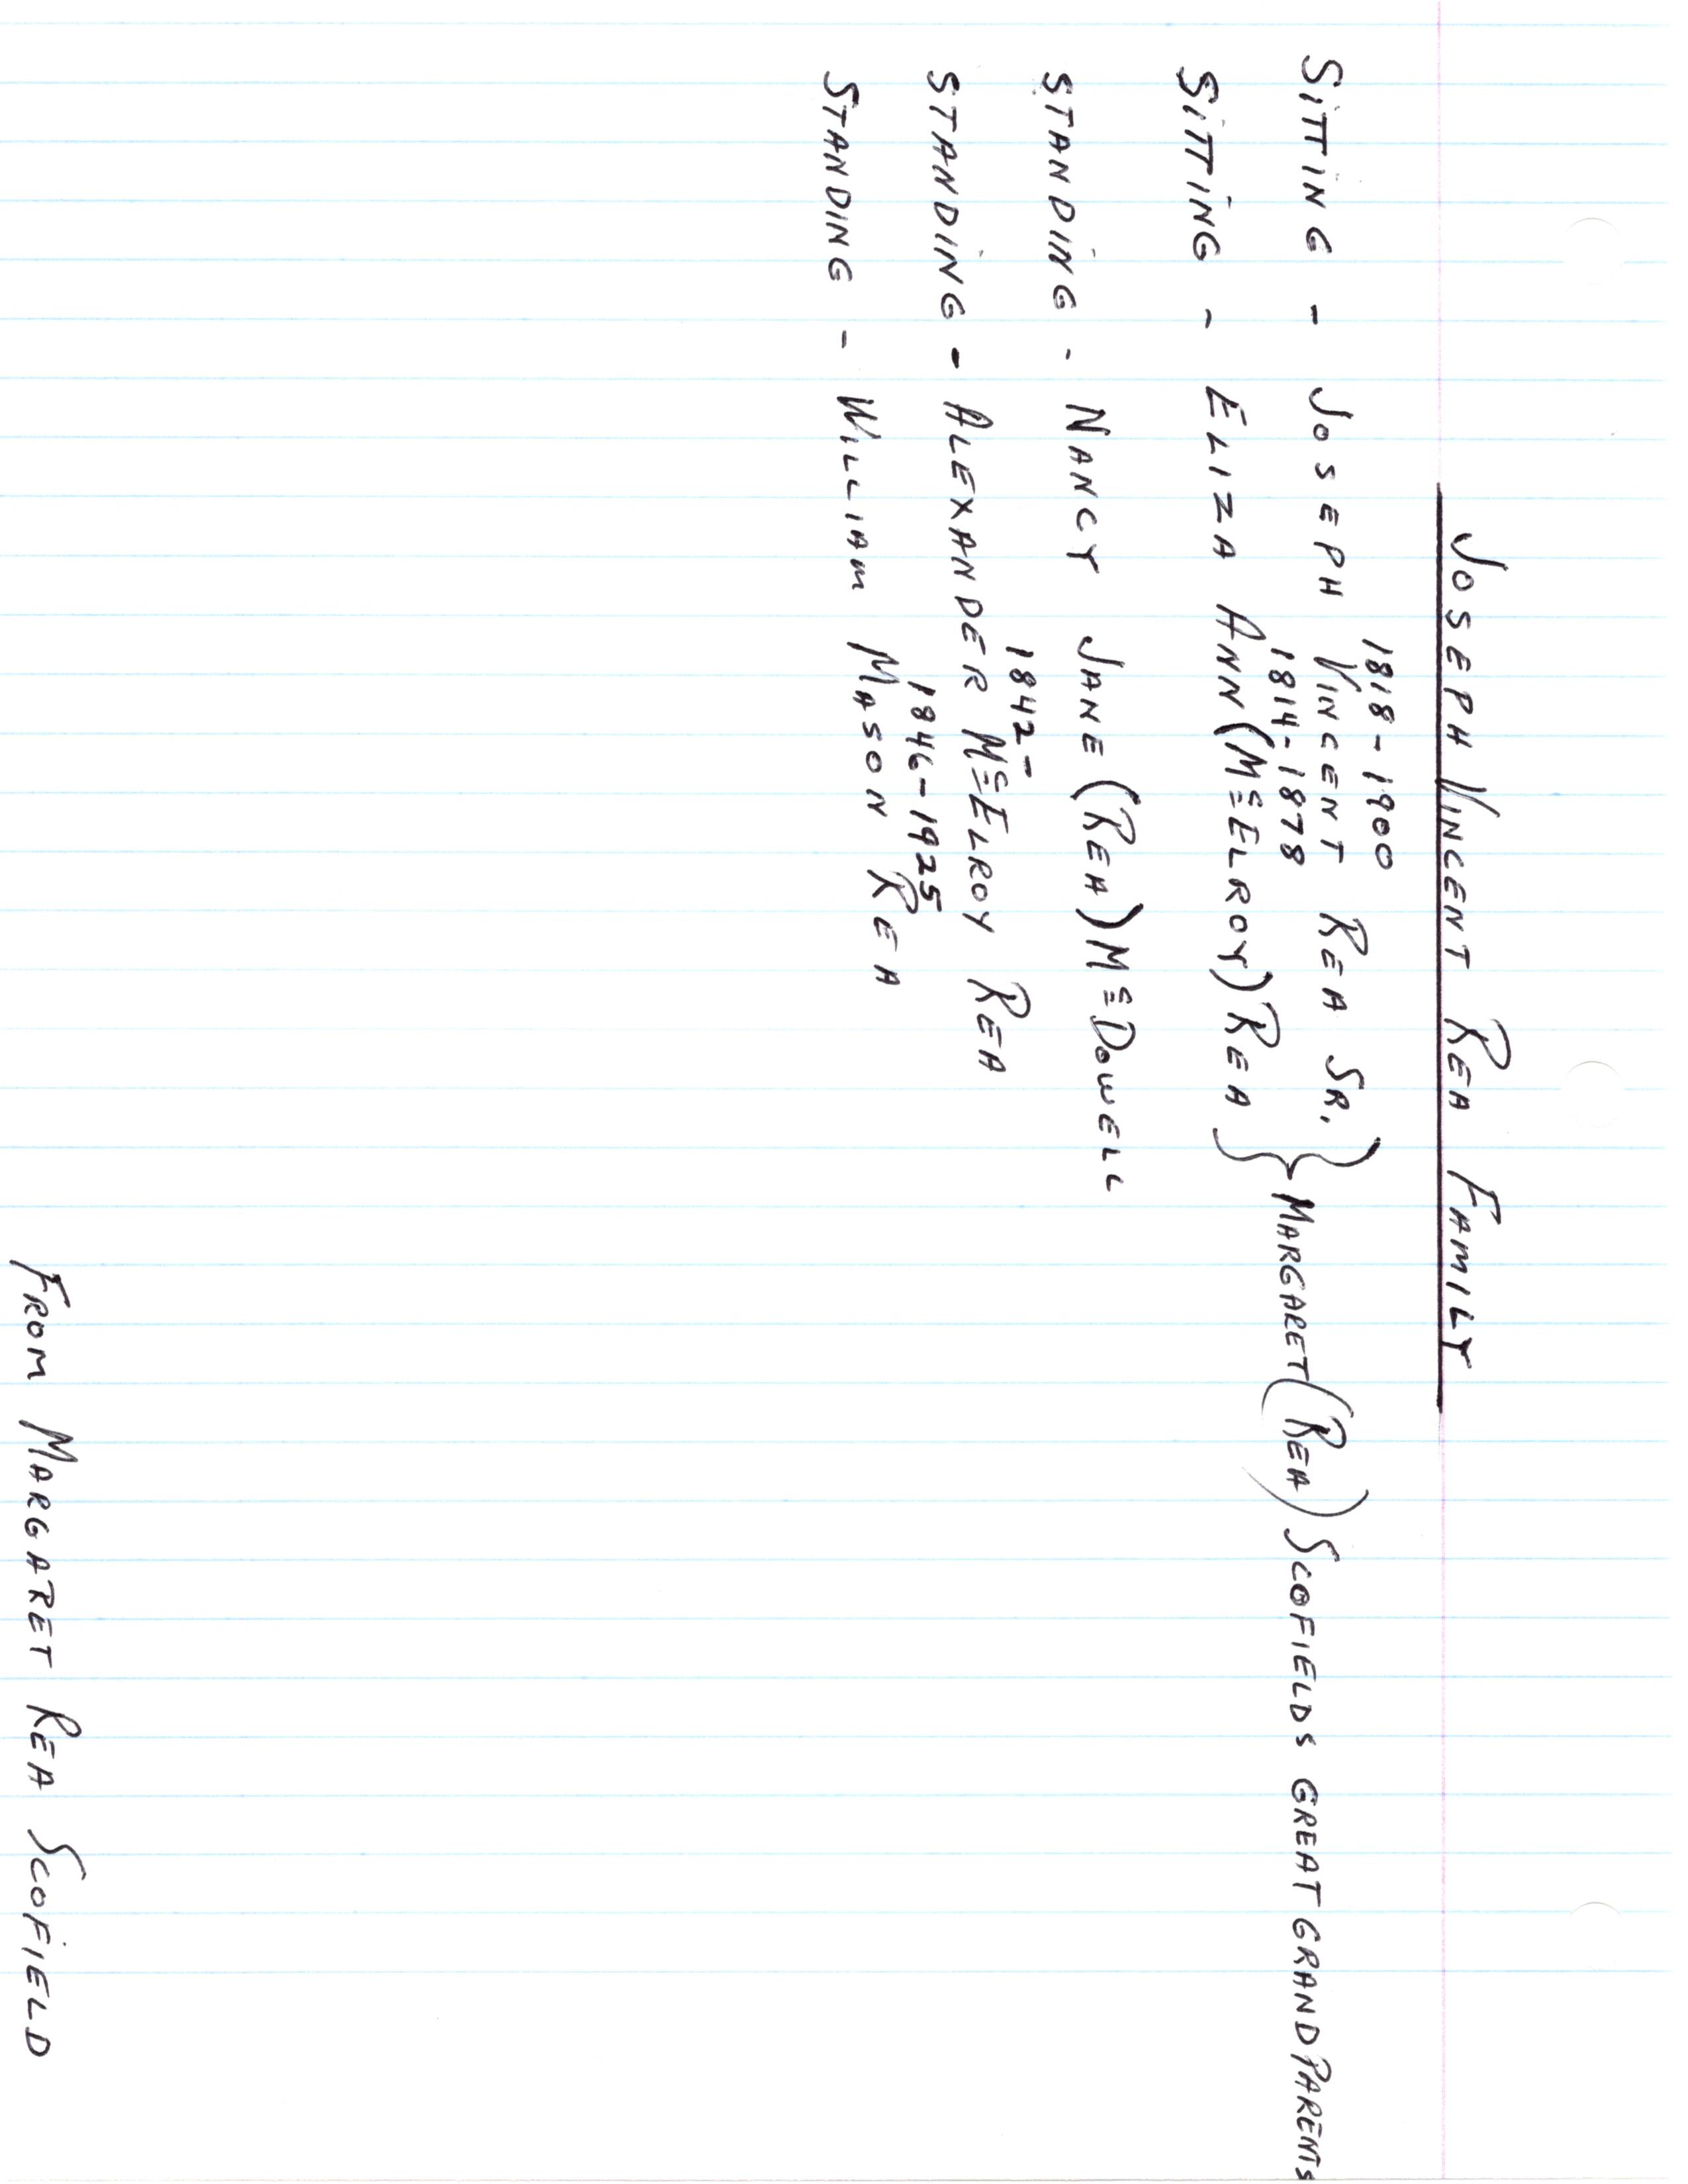 JOSEPH VINCENT REA FAMILY
1818-1900
SITTING - JOSEPH VINCENT REA SR. } MARGARET (REA) SCOFIELDS GREAT GRANDPARENTS
1814-1878
SITTING - ELIZA ANN (McELROY) REA
STANDING - NANCY JANE (REA) McDOWELL
1842-
STANDING - ALEXANDER McELROY REA
1846-1925
STANDING - WILLIAM MASON REA
FROM MARGARET REA SCOFIELD